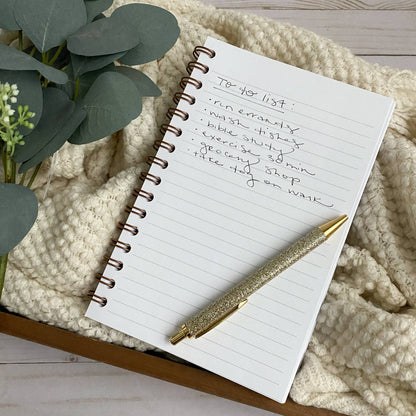 To do list:
· run errands
· wash dishes
· bible study
· exercise, 30 min
· grocery shop
take dog on walk